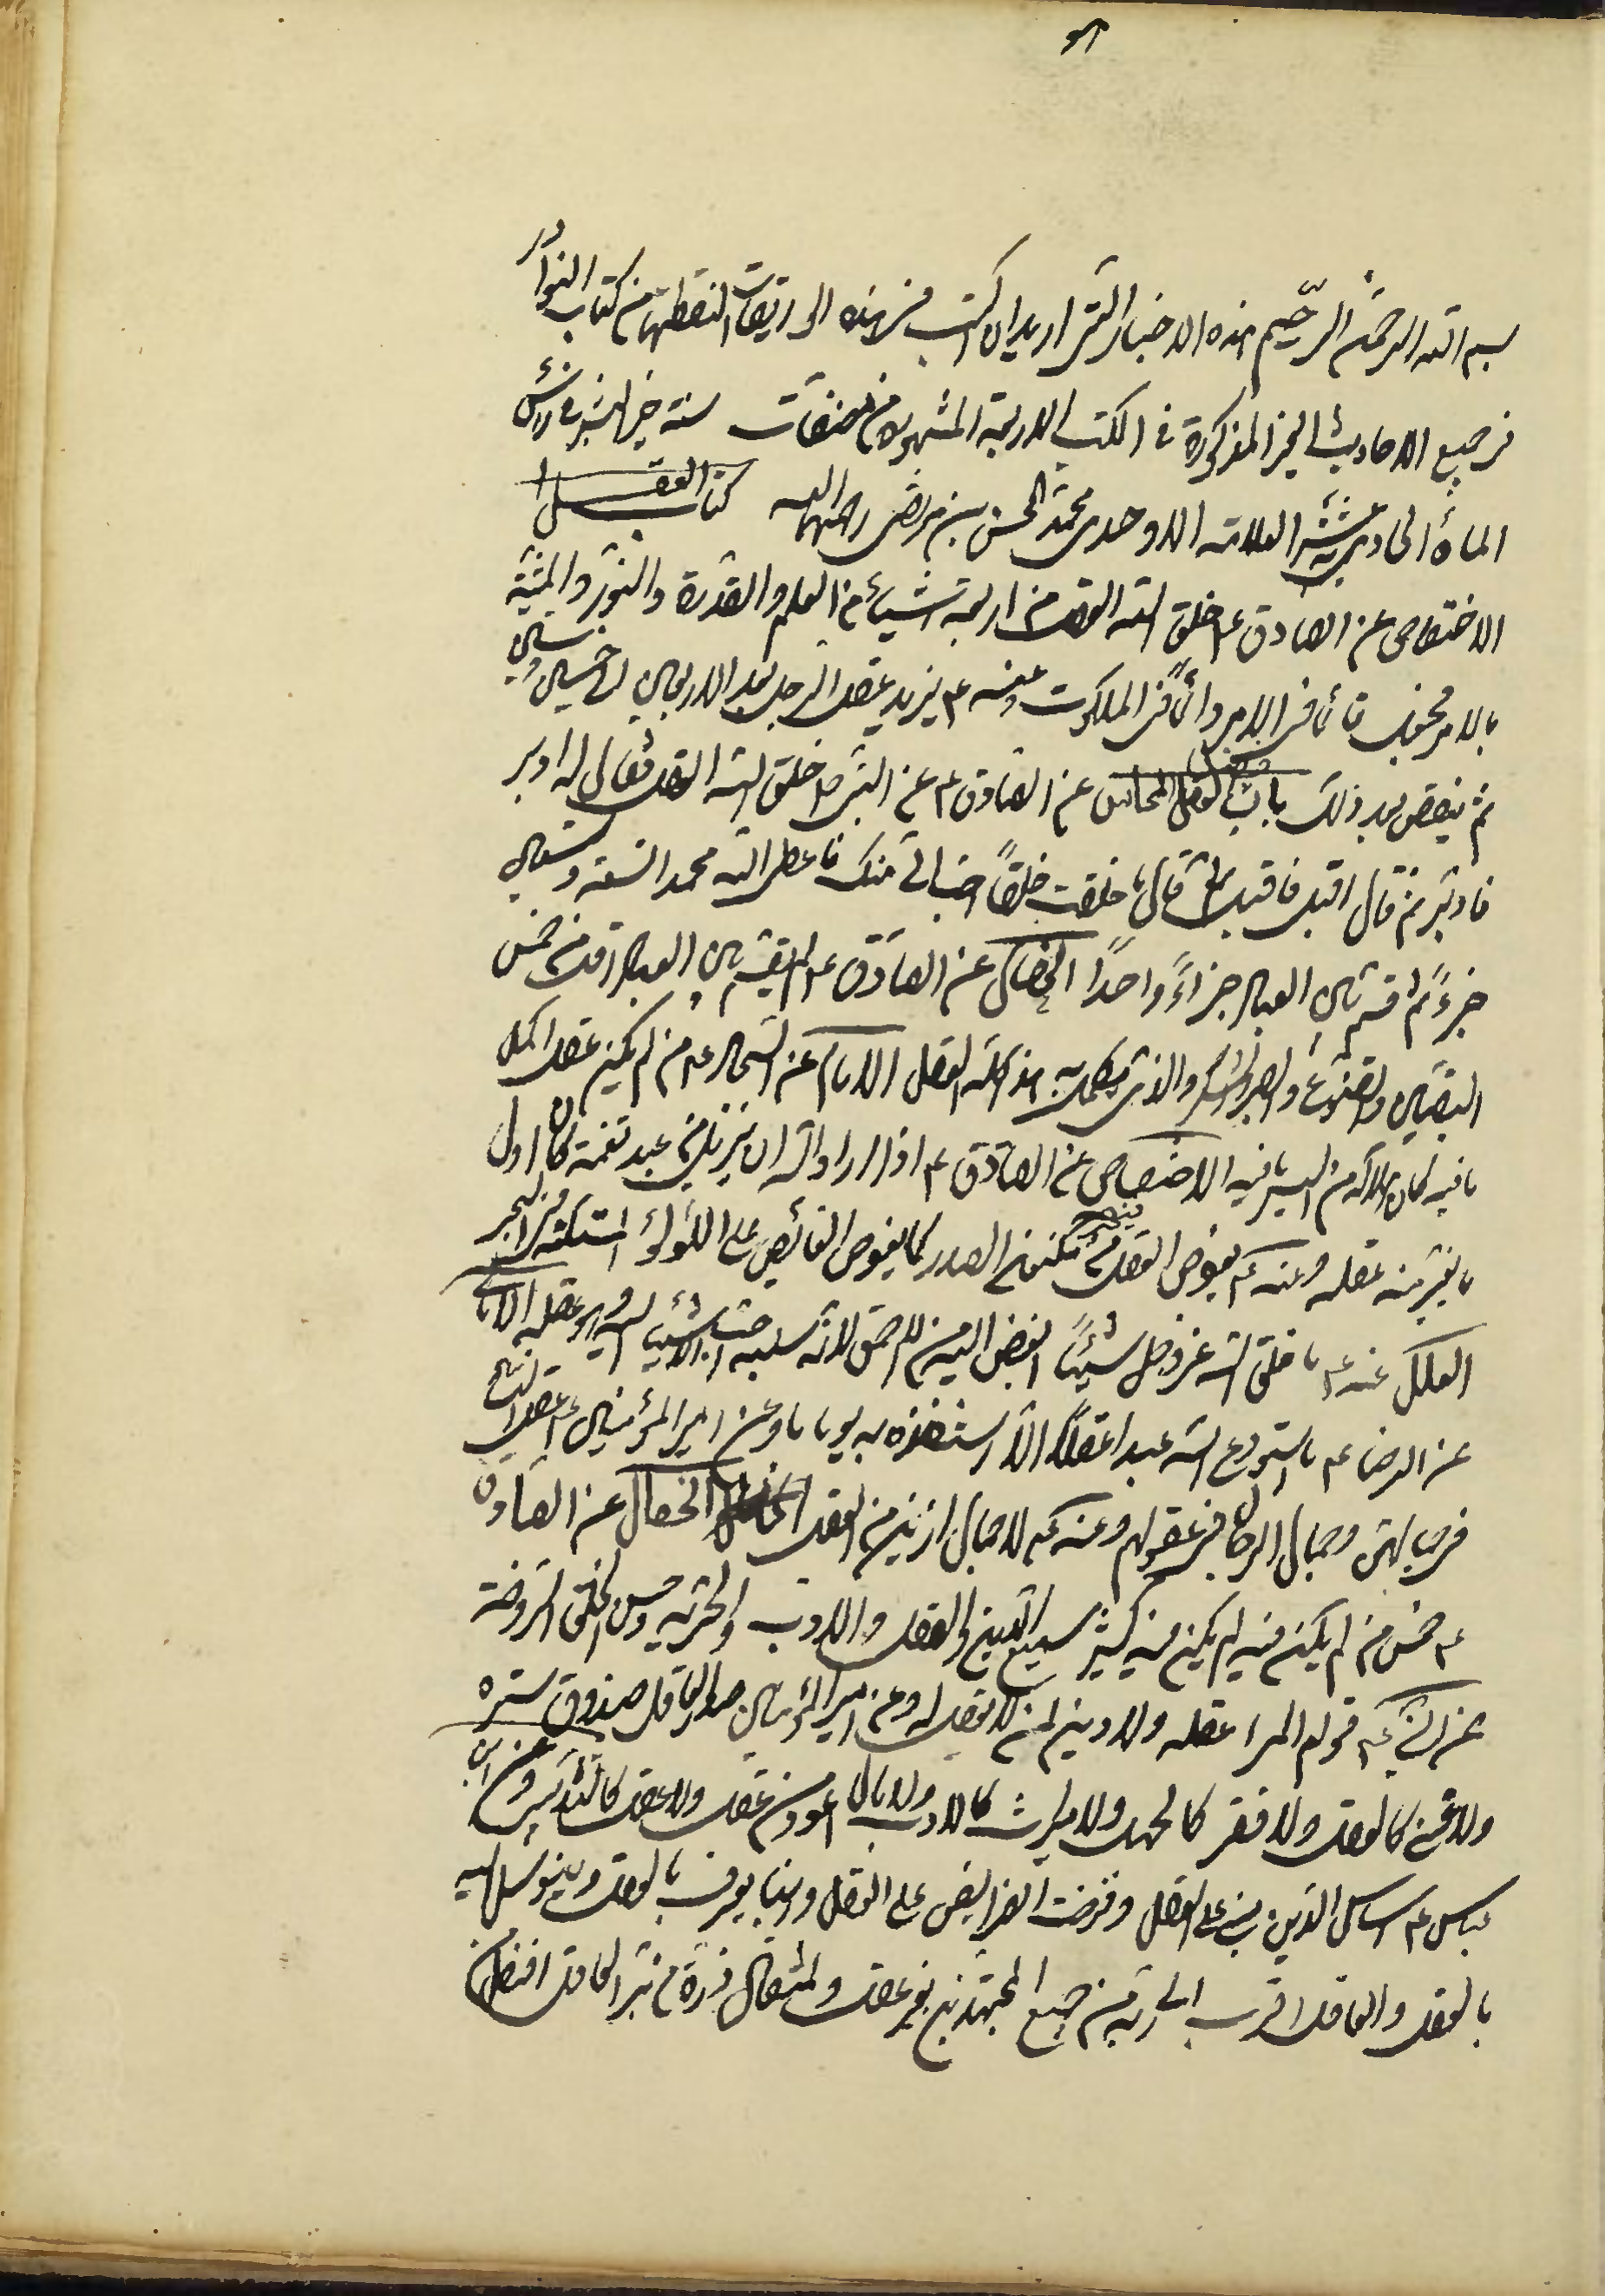 هو
بسم الله الرحمن الرحیم هذه الاخبار التی ارید ان اکتب فی هذه الوریقات التقطتها من کتاب النوادر
فی جمیع الاحادیث الغیر المذکورة فی الکتب الاربعة المشهورة من مصنفات
الماة الحادی عشر العلامة الاوحدی محمد المحسن بن مرتضی رحمهما الله کتاب العقل
الاختصاص عن الصادق ع خلق الله العقل من اربعة اشیاء من العلم والقدرة والنور والمشیة
بالامر فجعله قائما فی الامر دائما فی الملکوت وعنه ع یزید عقل الرجل بعد الاربعین الی خمسین وستین
ثم ینقص بعد ذلک باب العقل المحاسن عن الصادق ع عن النبی ص خلق الله العقل فقال له ادبر
فادبر ثم قال اقبل فاقبل ثم قال ما خلقت خلقاً احب الی منک فاعطی الله محمدا تسعة وتسعین
جزءً ثم قسم بین العباد جزاءً واحداً الخصال عن الصادق ع لم یقسم بین العباد اقل من خمس
الیقین والقنوع والصبر والشکر والذی یکمل به هذا کله العقل الامام عن السجاد ع من لم یکن عقله اکمل
ما فیه کان هلاکه من ایسر ما فیه الاختصاص عن الصادق ع اذا اراد الله ان یزیل من عبد نعمة کان اول
ما یغیر منه عقله وعنه ع یغوص العقل علی الکلام فیستخرجه من مکنون الصدر کما یغوص الغائص علی اللؤلؤ المستکنة فی البحر
العلل عنه ع ما خلق الله عز وجل شیئاً ابغض الیه من الاحمق لانه سلبه احب الاشیاء الیه وهو عقله الامالی
عن الرضا ع ما استودع الله عبدا عقلاً الا استنقذه به یوما ما وعن امیر المؤمنین ع عقول النساء
فی جمالهن وجمال الرجال فی عقولهم وعنه ع لا جمال ازین من العقل الخصال عن الصادق
ع خمس من لم یکن فیه لم یکن فیه کثیر مستمتع الدین والعقل والادب والحریة وحسن الخلق الروضة
عن النبی ع قوام المرء عقله ولا دین لمن لا عقل له وعن امیر المؤمنین صدر العاقل صندوق سره
ولا غنی کالعقل ولا فقر کالجهل ولا میراث کالادب ولا مال اعود من عقل ولا عقل کالتدبیر وعن ابن
عباس ع اساس الدین بنی علی العقل وفرضت الفرایض علی العقل وربنا یعرف بالعقل ویتوسل الیه
بالعقل والعاقل اقرب الی ربه من جمیع المجتهدین بغیر عقل ولمثقال ذرة من بر العاقل افضل من